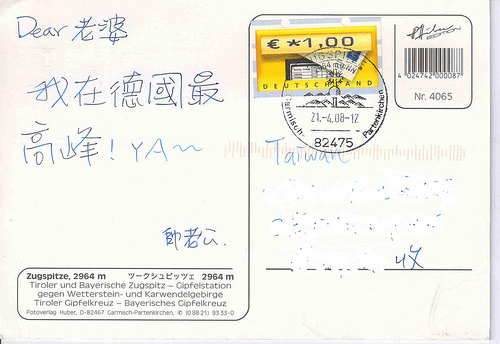 Dear 老婆
我在德國最
高峰! YA~
帥老公.
Zugspitze, 2964 m ツークシュピッツェ 2964 m
Tiroler und Bayerische Zugspitz – Gipfelstation
gegen Wetterstein- und Karwendelgebirge
Tiroler Gipfelkreuz – Bayerisches Gipfelkreuz
Fotoverlag Huber, D-82467 Garmisch-Partenkirchen, ✆ (08821) 9333-0
€ *1,00
DEUTSCHLAND
Garmisch-Partenkirchen
21.-4.08-12
82475
4 024742 000087
Nr. 4065
Taiwan
收